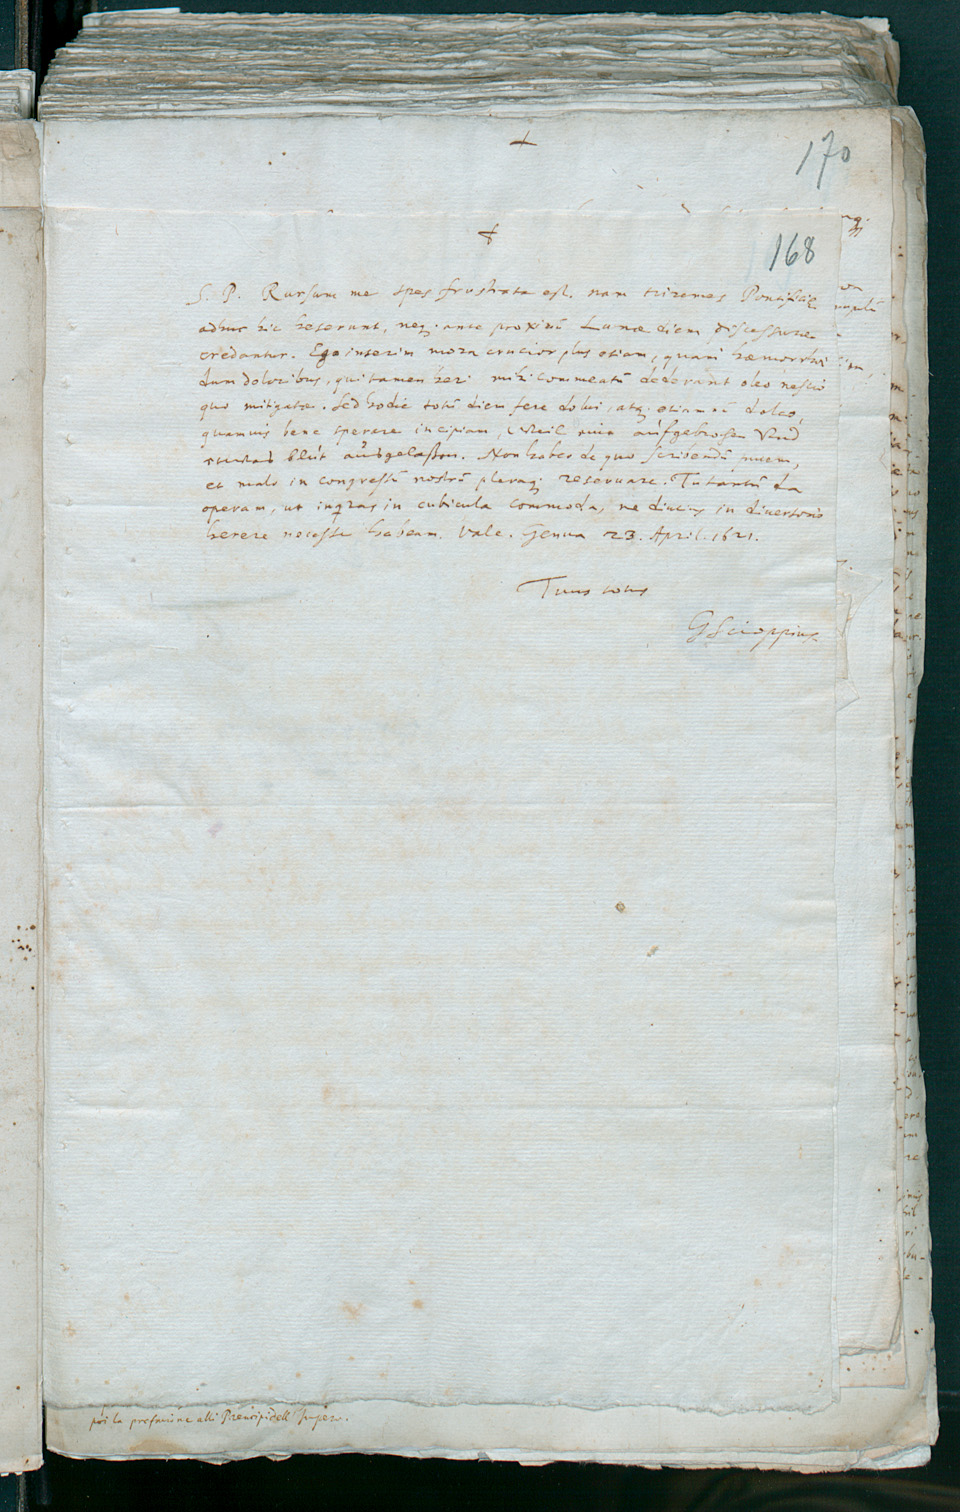 170
168
S. P. Rursum me spes frustrata est. nam triremes Pontificiae
adhuc hic haeserunt, neq. ante proximū Lunae diem discessurae
creduntur. Ego interim mora crucior plus etiam, quam haemorrhoi
dum doloribus, qui tamen heri mihi commeatū dederant oleo nescio
quo mitigatae. Sed hodie totū diem fere dolui, atq. etiam nū doleo,
quamuis bene sperare incipiam, weil aufgebrochen Vnd
etwas blůt aůsgelassen. Non habeo de quo scribendū putem,
et malo in congressū nostrū pleraq. reseruare. Tu tantū da
operam, ut inquiras in cubicula commoda, ne diutius in diuersorio
herere necesse habeam. Vale. Genua 23. April. 1621.
Tuus totus
GScioppius
poi la prefatione alli Prencipi dell' Impero.